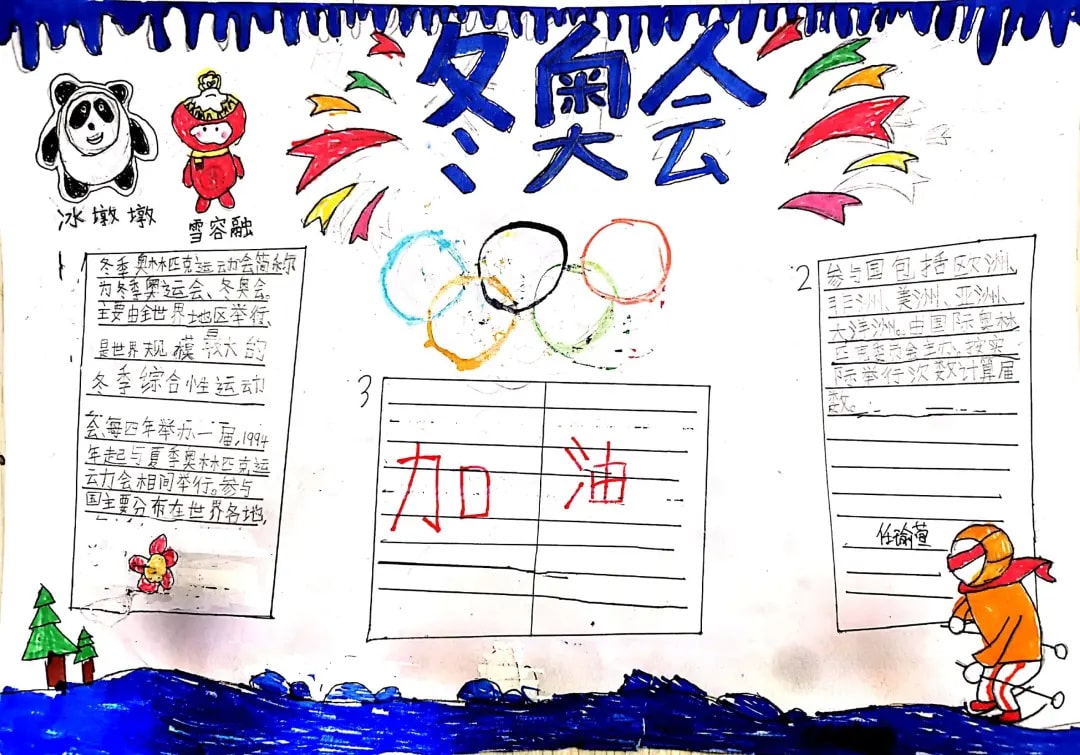 冬奥会
冰墩墩
雪容融
1
冬季奥林匹克运动会简称
为冬季奥运会、冬奥会。
主要由全世界地区举行,
是世界规模最大的
冬季综合性运动
会,每四年举办一届,1994
年起与夏季奥林匹克运
动会相间举行。参与
国主要分布在世界各地,
2
参与国包括欧洲、
非洲、美洲、亚洲、
大洋洲。由国际奥林
匹克委员会主办。按实
际举行次数计算届
数。
3
加油
任瑜萱